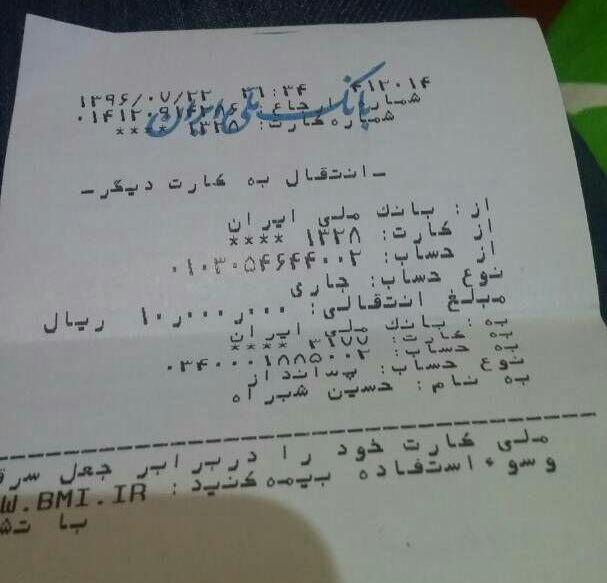 ۱۳۹۶/۰۷/۲۲ ۲۱:۳۴ ۴۱۲۰۱۴
بانک ملی ایران
شماره کارت: ۱۳۲۸ ****
-انتقال به کارت دیگر-
از: بانک ملی ایران
از کارت: ۱۳۲۸ ****
از حساب: ۰۱۰۳۰۵۴۶۴۴۰۰۲
نوع حساب: جاری
مبلغ انتقالی: ۱۰٫۰۰۰٫۰۰۰ ریال
به: بانک ملی ایران
به کارت: ۳۱۷۷ ****
به حساب: ۰۳۴۰۰۰۱۸۸۵۰۰۲
نوع حساب: پس‌انداز
به نام: حسین شیر اه
ملی کارت خود را در برابر جعل سرق
و سوء استفاده بیمه کنید: W.BMI.IR
با تش